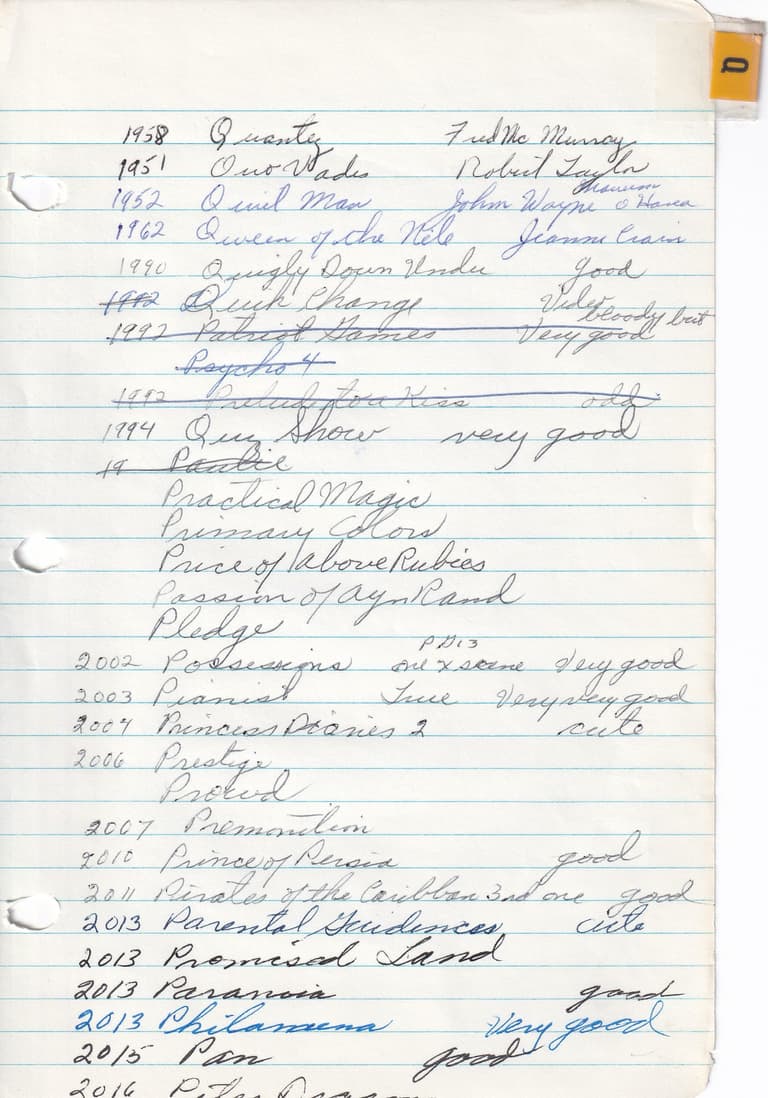 Q
1958 Quantez Fred Mc Murray
1951 Quo Vadis Robert Taylor
1952 Quiet Man John Wayne Maureen O'Hara
1962 Queen of the Nile Jeanne Crain
1990 Quigly Down Under good
1992 Quick Change Video
1992 Patriot Games Very good bloody but
Psycho 4
1992 Prelude to a Kiss odd
1994 Quiz Show very good
19 Paulie
Practical Magic
Primary Colors
Price of Above Rubies
Passion of Ayn Rand
Pledge
2002 Possessions PG13 one x scene Very good
2003 Pianist True Very very good
2004 Princess Diaries 2 cute
2006 Prestige
Proud
2007 Premonition
2010 Prince of Persia good
2011 Pirates of the Caribban 3rd one good
2013 Parental Guidences cute
2013 Promised Land
2013 Paranoia good
2013 Philamena Very good
2015 Pan good
2016 Petes Dragon